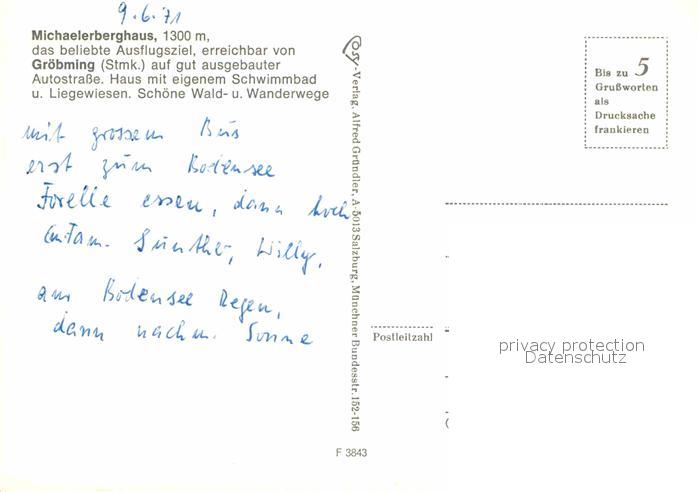 9.6.71
Michaelerberghaus, 1300 m,
das beliebte Ausflugsziel, erreichbar von
Gröbming (Stmk.) auf gut ausgebauter
Autostraße. Haus mit eigenem Schwimmbad
u. Liegewiesen. Schöne Wald- u. Wanderwege
mit grossem Bus
erst zum Bodensee
Forelle essen, dann hoch
Fam. Günther, Willy,
am Bodensee Regen,
dann nachm. Sonne
Cosy-Verlag, Alfred Gründler, A-5013 Salzburg, Münchner Bundesstr. 152-156
Bis zu 5
Grußworten
als
Drucksache
frankieren
Postleitzahl
privacy protection
Datenschutz
F 3843